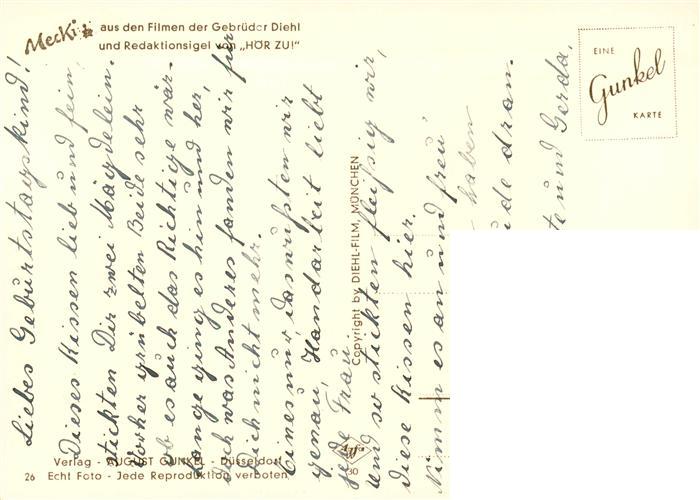 Mecki
aus den Filmen der Gebrüder Diehl
und Redaktionsigel von „HÖR ZU!"
EINE
Gunkel
KARTE
Liebes Geburtstagskind!
Dieses Kissen lieb und fein,
stickten Dir zwei Mägdelein.
Vorher grübelten Beide sehr
ob es auch das Richtige wär.
Lange ging es hin und her,
doch was Anderes fanden wir für
Dich nicht mehr.
Eines nur, das wußten wir
genau, Handarbeit liebt
jede Frau.
Und so stickten fleißig wir,
diese Kissen hier.
Nimm es an und freu'
haben
dran.
und Gerda.
Copyright by DIEHL-FILM, MÜNCHEN
Agfa
30
Verlag - AUGUST GUNKEL - Düsseldorf
26 Echt Foto - Jede Reproduktion verboten